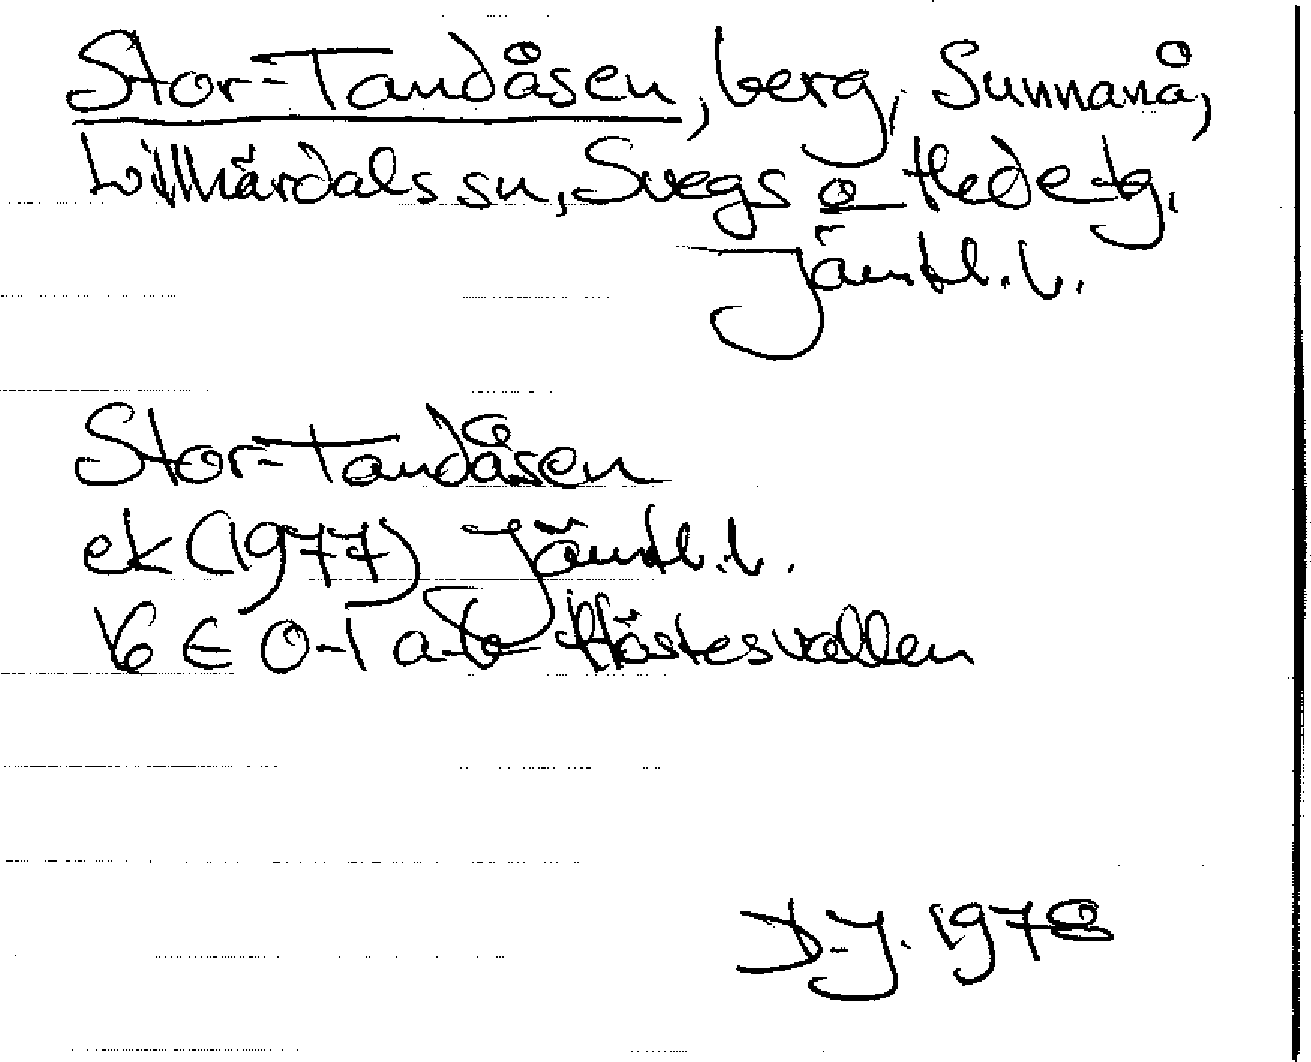 Stor-Tandåsen, berg, Sunnanå,
Lillhärdals sn, Svegs o Hede tg,
Jämtl. l.
Stor-Tandåsen
ek (1977) Jämtl. l.
16 E 0-1 a-b Höstesvallen
D.J. 1978